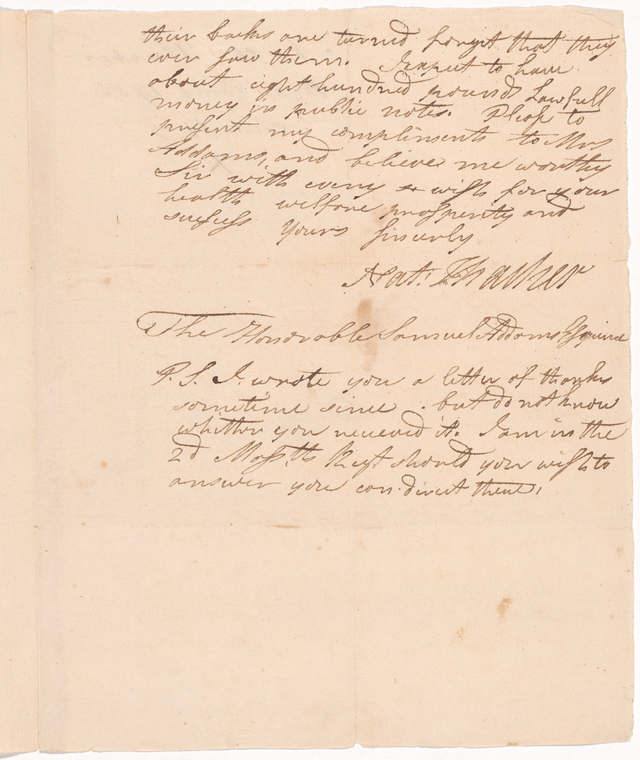 their backs are turned forget that they
ever saw them. I expect to have
about eight hundred pounds Lawfull
money in public notes. Please to
present my compliments to Mrs
Addams, and believe me worthy
Sir with every wish for your
health welfare prosperity and
success
Yours sincerly
Nat. Thacher
The Honorable Samuel Addams Esquire
P.S. I wrote you a letter of thanks
sometime since. but do not know
whether you receved it. I am in the
2d Masstts Regt should you wish to
answer you can direct there,